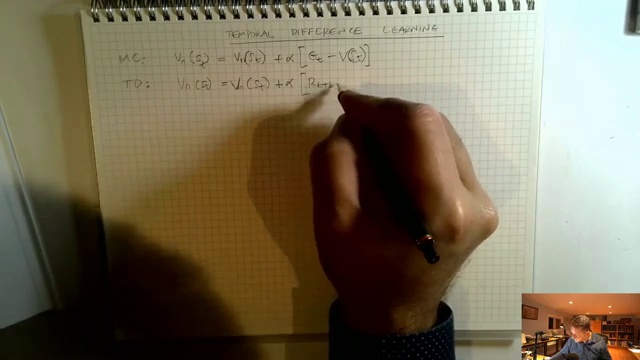 TEMPORAL DIFFERENCE LEARNING
MC: Vπ(St) = Vπ(St) + α [Gt − V(St)]
TD: Vπ(St) = Vπ(St) + α [Rt+1